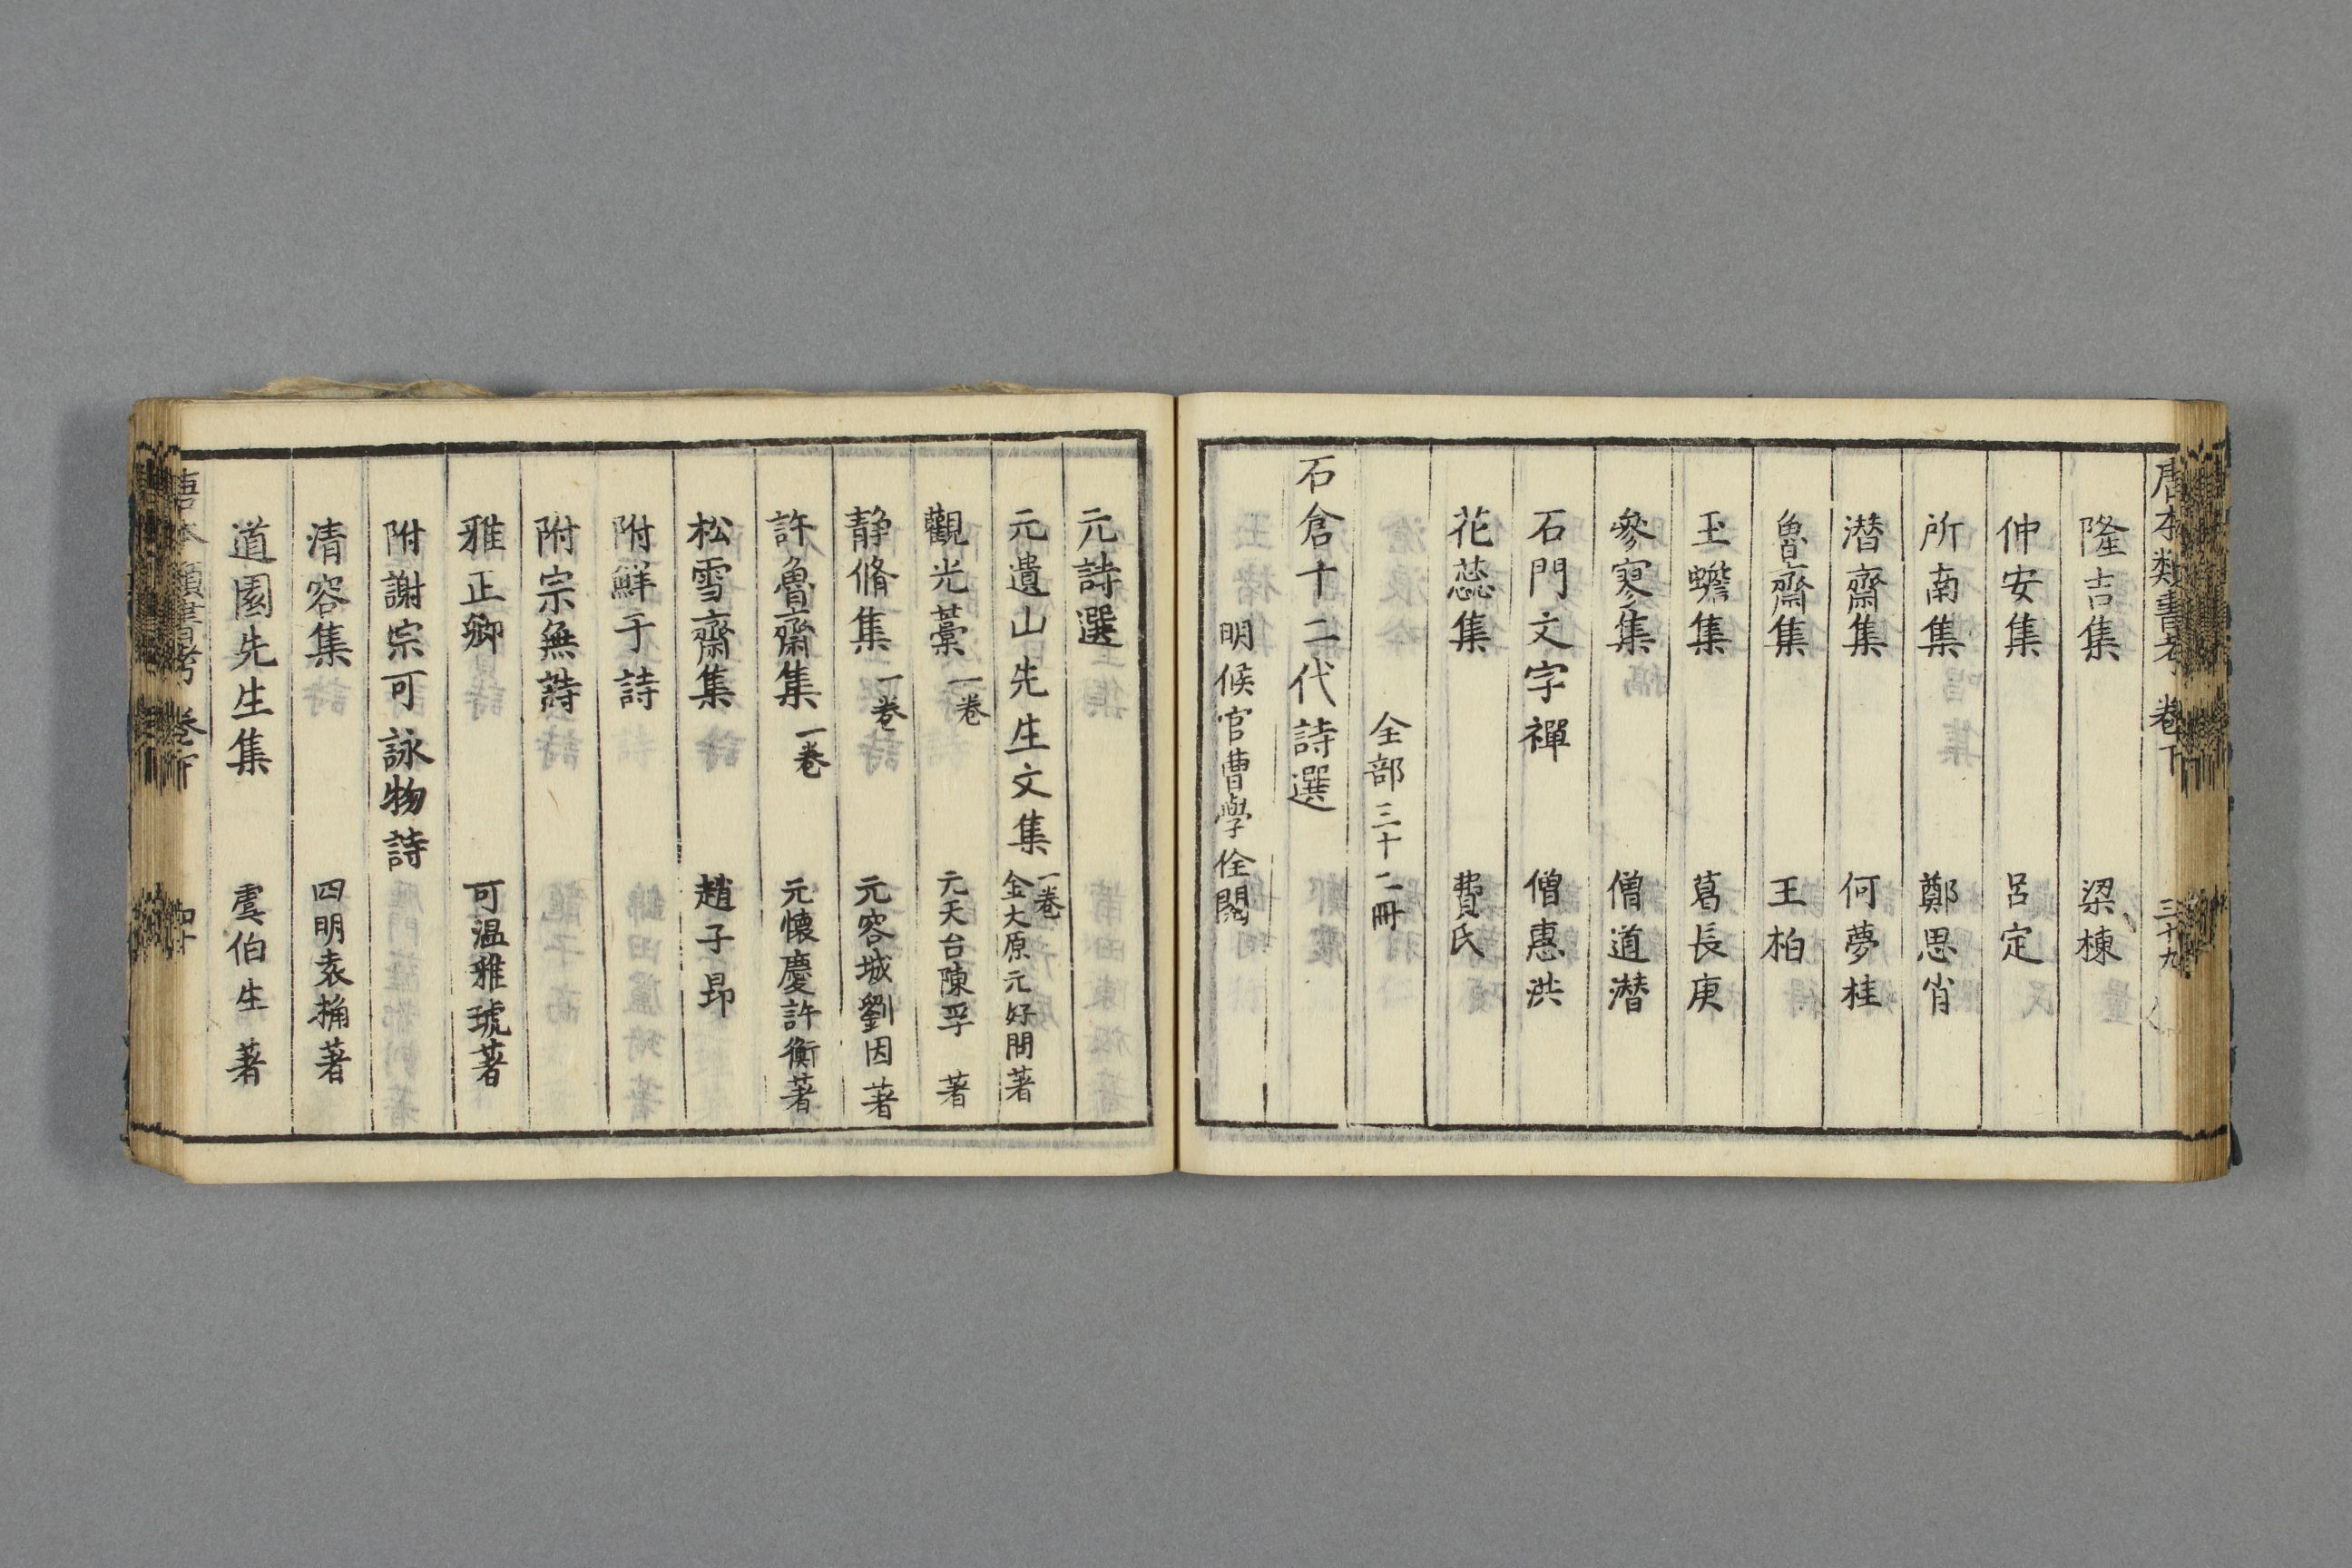 唐本類書考 卷下 三十九
隆吉集 梁棟
仲安集 呂定
所南集 鄭思肖
潜齋集 何夢桂
魯齋集 王柏
玉蟾集 葛長庚
參寥集 僧道潜
石門文字禪 僧惠洪
花蕊集 費氏
全部三十二冊
石倉十二代詩選
明候官曹學佺閱
元詩選
元遺山先生文集 一卷 金大原元好問著
觀光藁 一卷 元天台陳孚著
静脩集 一卷 元容城劉因著
許魯齋集 一卷 元懷慶許衡著
松雪齋集 趙子昂
附鮮于詩
附宗無詩
雅正卿 可温雅琥著
附謝宗可詠物詩
清容集 四明袁桷著
道園先生集 虞伯生著
唐本類書考 卷下 四十